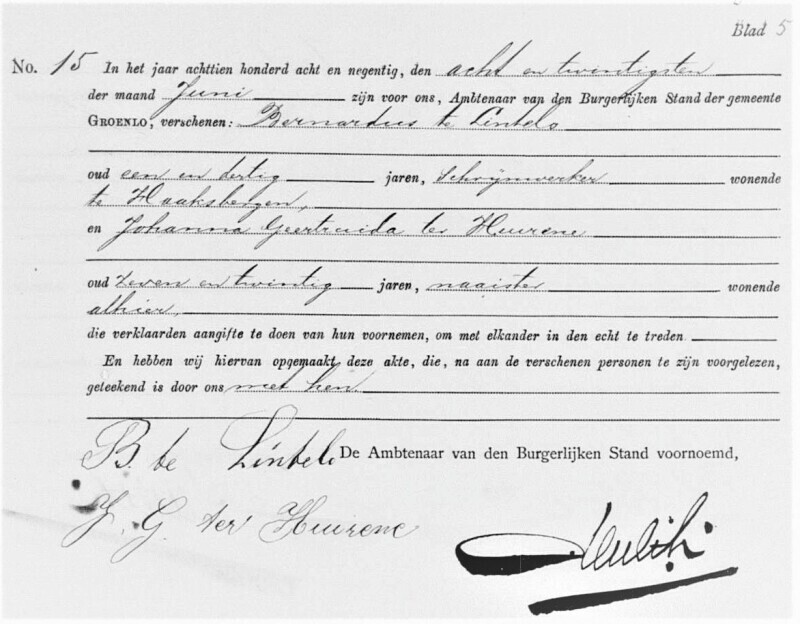 Blad 5
No. 15 In het jaar achttien honderd acht en negentig, den acht en twintigsten
der maand Juni zijn voor ons, Ambtenaar van den Burgerlijken Stand der gemeente
GROENLO, verschenen: Bernardus te Lintelo
oud een en dertig jaren, Schrijnwerker wonende
te Haaksbergen,
en Johanna Geertruida ter Huurne
oud zeven en twintig jaren, naaister wonende
alhier,
die verklaarden aangifte te doen van hun voornemen, om met elkander in den echt te treden
En hebben wij hiervan opgemaakt deze akte, die, na aan de verschenen personen te zijn voorgelezen,
geteekend is door ons met hen
B. te Lintelo De Ambtenaar van den Burgerlijken Stand voornoemd,
J. G. ter Huurne